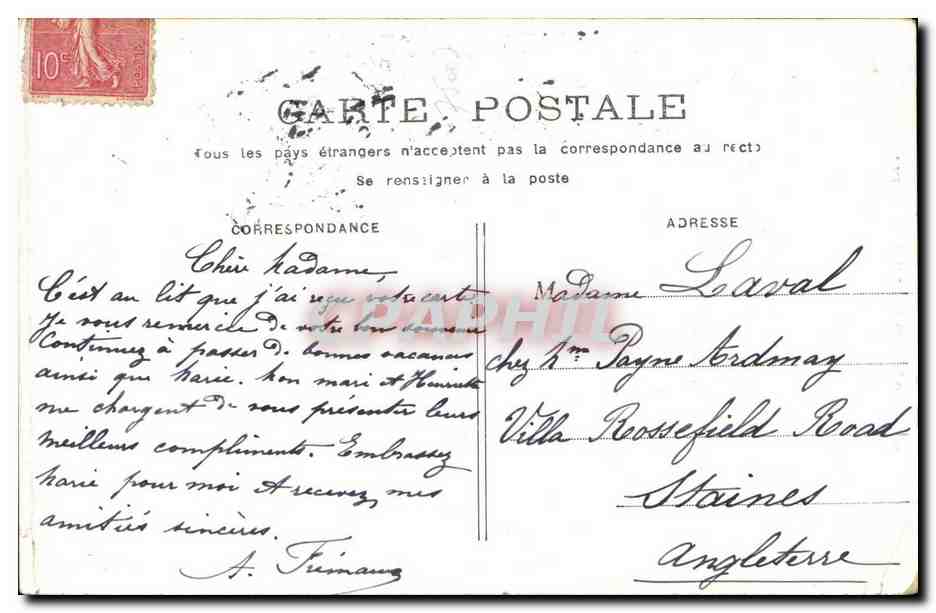 10c
POSTES
CARTE POSTALE
Tous les pays étrangers n'acceptent pas la correspondance au recto
Se renseigner à la poste
CORRESPONDANCE
Chère Madame,
C'est au lit que j'ai reçu votre carte
Je vous remercie de votre bon souvenir
Continuez à passer de bonnes vacances
ainsi que Marie. Mon mari et Henriette
me chargent de vous présenter leurs
meilleurs compliments. Embrassez
Marie pour moi et recevez mes
amitiés sincères.
A. Frémaux
ADRESSE
Madame Laval
chez Mme Payne Ardmay
Villa Rossefield Road
Staines
Angleterre
CPAPHIL